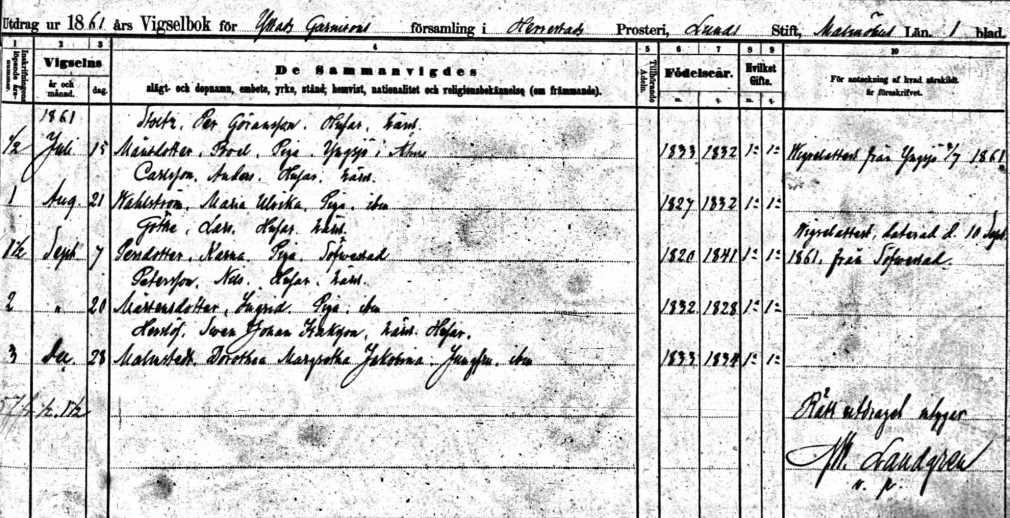 Utdrag ur 1861 års Vigselbok för Ystads Garnisons församling i Herrestads Prosteri, Lunds Stift, Malmöhus Län. 1 blad.
1 2 3 4 5 6 7 8 9 10
Inskrifningens löpande års-nummer.
Vigselns
år och månad. dag.
De Sammanvigdes
slägt- och dopnamn, embete, yrke, stånd; hemvist, nationalitet och religionsbekännelse (om främmande).
Tillhörande Adeln.
Födelseår.
m. q.
Hvilket Gifte.
m. q.
För anteckning af hvad särskildt är föreskrifvet.
1861 Per Göransson. Husar. härst.
1/2 Juli 15 Mansdotter, Boel. Piga. Yngsjö i Åhus 1833 1832 1:a 1:a Vigselattest från Yngsjö /7 1861
Carlsson. Anders. Husar. härst.
1 Aug. 21 Wahlström, Maria Ulrika. Piga. ibm 1827 1832 1:a 1:a
Göthe, Lars. Husar. härst. Vigselattest, daterad d. 10 Sept.
1 1/2 Sept. 7 Persdotter, Karna. Piga. Töfwestad 1820 1841 1:a 1:a 1861, från Töfwestad.
Petersson. Nils. Husar. härst.
2 " 20 Mårtensdotter, Ingrid. Piga. ibm 1832 1828 1:a 1:a
Swen Johan härst. Husar.
3 Dec. 28 Malmstedt. Dorothea Margretha Jakobina. Jungfru. ibm 1833 1834 1:a 1:a
Rätt utdraget intygar
Landgren
v. p.